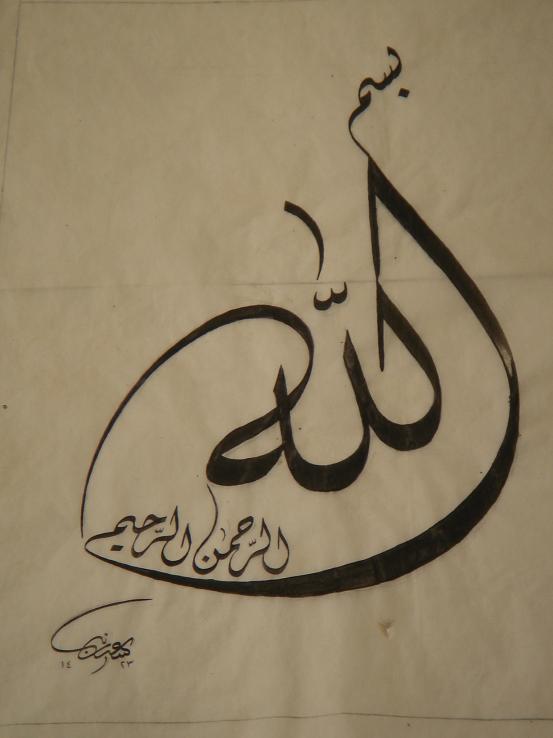 بسم
اللّه
الرّحمن الرّحيم
١٤ ٢٣